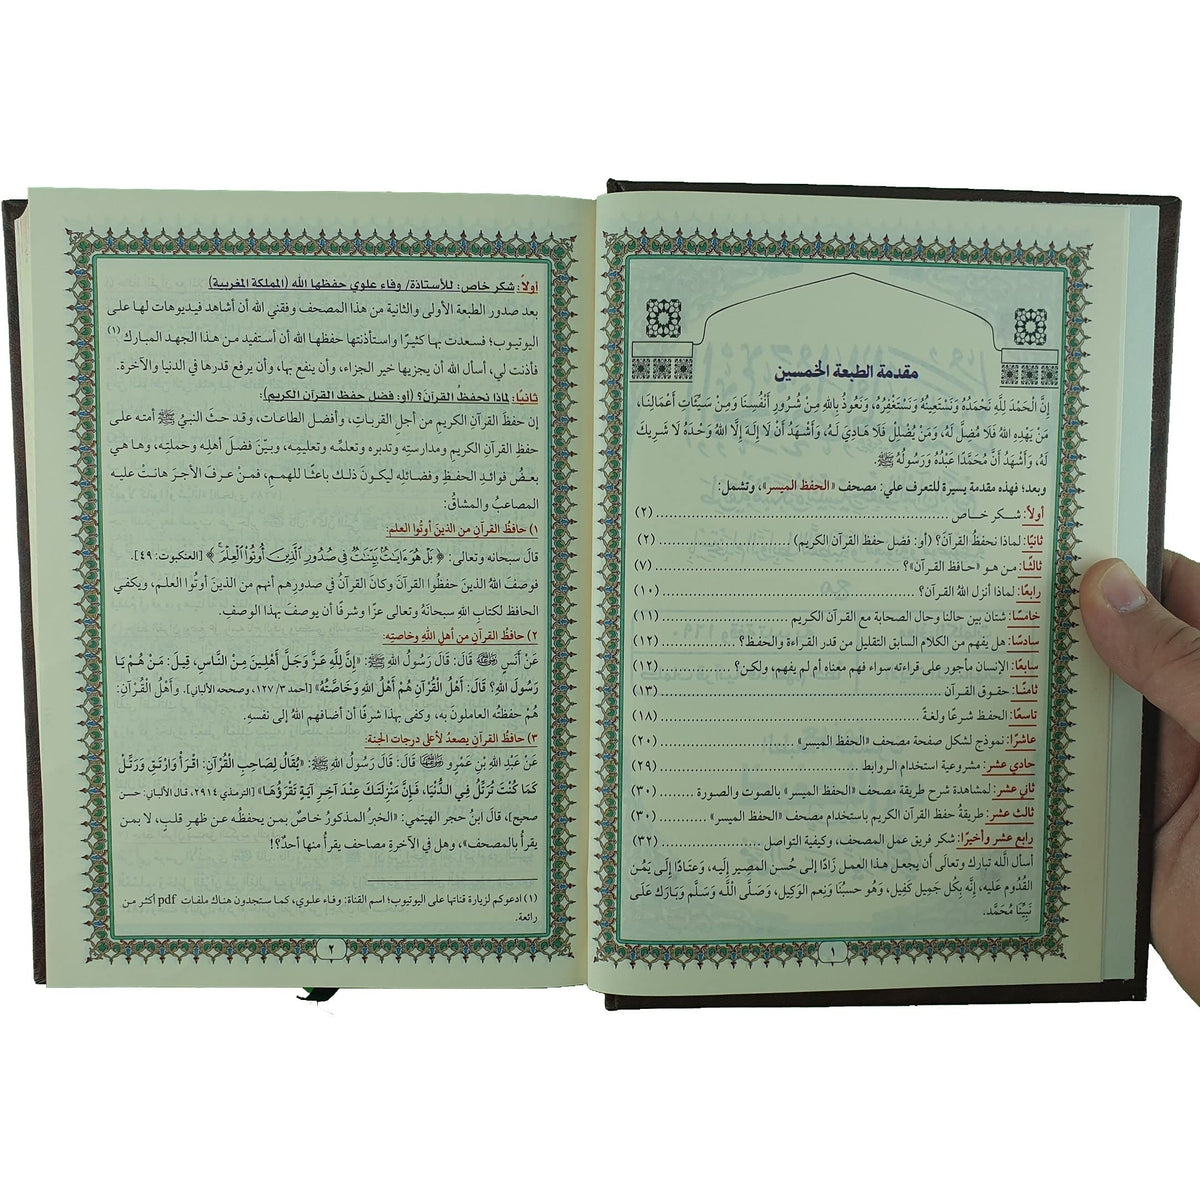 مقدمة الطبعة الخمسين
إِنَّ الْحَمْدَ لِلَّهِ نَحْمَدُهُ وَنَسْتَعِينُهُ وَنَسْتَغْفِرُهُ، وَنَعُوذُ بِاللهِ مِنْ شُرُورِ أَنْفُسِنَا وَمِنْ سَيِّئَاتِ أَعْمَالِنَا،
مَنْ يَهْدِهِ اللهُ فَلَا مُضِلَّ لَهُ، وَمَنْ يُضْلِلْ فَلَا هَادِيَ لَهُ، وَأَشْهَدُ أَنْ لَا إِلَهَ إِلَّا اللهُ وَحْدَهُ لَا شَرِيكَ
لَهُ، وَأَشْهَدُ أَنَّ مُحَمَّدًا عَبْدُهُ وَرَسُولُهُ ﷺ.
وبعد؛ فهذه مقدمة يسيرة للتعرف على: مصحف «الحفظ الميسر»، وتشمل:
أولاً: شكر خاص (٢)
ثانيًا: لماذا نحفظُ القرآنَ؟ (أو: فضل حفظ القرآن الكريم) (٢)
ثالثًا: من هو «حافظ القرآن»؟ (٧)
رابعًا: لماذا أنزل اللهُ القـرآن؟ (١٠)
خامسًا: شتان بين حالنا وحال الصحابة مع القرآن الكريم (١١)
سادسًا: هل يفهم من الكلام السابق التقليل من قدر القراءة والحفظ؟ (١٢)
سابعًا: الإنسان مأجور على قراءته سواء فهم معناه أم لم يفهم، ولكن؟ (١٢)
ثامنًا: حقوق القرآن (١٣)
تاسعًا: الحفظ شرعًا ولغةً (١٨)
عاشرًا: نموذج لشكل صفحة مصحف «الحفظ الميسر» (٢٠)
حادي عشر: مشروعية استخدام الروابط (٢٩)
ثاني عشر: لمشاهدة شرح طريقة مصحف «الحفظ الميسر» بالصوت والصورة (٣٠)
ثالث عشر: طريقةُ حفظ القرآن الكريم باستخدام مصحف «الحفظ الميسر» (٣٠)
رابع عشر وأخيرًا: شكر فريق عمل المصحف، وكيفية التواصل (٣٢)
أسأل الله تبارك وتعالَى أن يجعل هذا العمل زَادًا إلَى حُسن المصير إليه، وعَتَادًا إلَى يَمُن
القُدُوم عَليه، إنَّه بِكُل جَميل كَفِيل، وَهُو حسبُنَا وَنِعم الوَكِيل، وَصَلَّى الله وَسَلَّم وَبَارَك عَلَى
نَبِيِّنَا مُحَمَّد.
١
أولاً: شكر خاص: للأستاذة/ وفاء علوي حفظها الله (المملكة المغربية)
بعد صدور الطبعة الأولى والثانية من هذا المصحف وفقني الله أن أشاهد فيديوهات لها على
اليوتيوب؛ فسعدت بها كثيرًا واستأذنتها حفظها الله أن أستفيد من هذا الجهد المبارك (١)
فأذنت لي، أسأل الله أن يجزيها خير الجزاء، وأن ينفع بها، وأن يرفع قدرها في الدنيا والآخرة.
ثانيًا: لماذا نحفظُ القرآنَ؟ (أو: فضل حفظ القرآن الكريم):
إن حفظَ القرآنِ الكريم من أجل القربات، وأفضل الطاعات، وقد حثَّ النبيُّ ﷺ أمته على
حفظ القرآن الكريم ومدارسته وتدبره وتعلُّمه وتعليمه، وبيّن فضلَ أهلِه وحملتِه، وها هي
بعضُ فوائد الحفظِ وفضائلِه ليكون ذلك باعثًا للهمم، فمنْ عرفَ الأجرَ هانتْ عليه
المصاعبُ والمشاقُ:
١) حافظُ القرآنِ من الذينَ أوتُوا العلمَ:
قالَ سبحانه وتعالى: ﴿بَلْ هُوَ ءَايَٰتٌۢ بَيِّنَٰتٌ فِي صُدُورِ ٱلَّذِينَ أُوتُواْ ٱلْعِلْمَ﴾ [العنكبوت: ٤٩].
فوصفَ اللهُ الذينَ حفظُوا القرآنَ وكانَ القرآنُ في صدورِهم أنهم من الذينَ أوتُوا العلمَ، ويكفي
الحافظَ لكتابِ اللهِ سبحانَهُ وتعالى عزًّا وشرفًا أن يوصفَ بهذا الوصفِ.
٢) حافظُ القرآنِ من أهلِ اللهِ وخاصتِه:
عَنْ أَنَسٍ رضي الله عنه قَالَ: قَالَ رَسُولُ اللهِ ﷺ: «إِنَّ لِلَّهِ عَزَّ وَجَلَّ أَهْلِينَ مِنَ النَّاسِ، قِيلَ: مَنْ هُمْ يَا
رَسُولَ اللهِ؟ قَالَ: أَهْلُ الْقُرْآنِ هُمْ أَهْلُ اللهِ وَخَاصَّتُهُ» [أحمد ٣/ ١٢٧، وصححه الألباني]. وَأَهْلُ الْقُرْآنِ:
هُمْ حفظتُه العاملونَ به، وكفى بهذا شرفًا أن أضافهم اللهُ إلى نفسِهِ.
٣) حافظُ القرآنِ يصعدُ لأعلى درجات الجنة:
عَنْ عَبْدِ اللهِ بْنِ عَمْرٍو رضي الله عنهما قَالَ: قَالَ رَسُولُ اللهِ ﷺ: «يُقَالُ لِصَاحِبِ الْقُرْآنِ: اقْرَأْ وَارْتَقِ وَرَتِّلْ
كَمَا كُنْتَ تُرَتِّلُ فِي الدُّنْيَا، فَإِنَّ مَنْزِلَتَكَ عِنْدَ آخِرِ آيَةٍ تَقْرَؤُهَا» [الترمذي ٢٩١٤، وقال الألباني: حسن
صحيح]، قالَ ابنُ حجر الهيتمي: «الخبرُ المذكورُ خاصٌ بمن يحفظُه عن ظهرِ قلبٍ، لا بمن
يقرأُ بالمصحف»، وهل في الآخرةِ مصاحف يقرأُ منها أحدٌ؟!
(١) ادعوكم لزيارة قناتها على اليوتيوب؛ اسم القناة: وفاء علوي، كما ستجدون هناك ملفات pdf أكثر من
رائعة.
٢